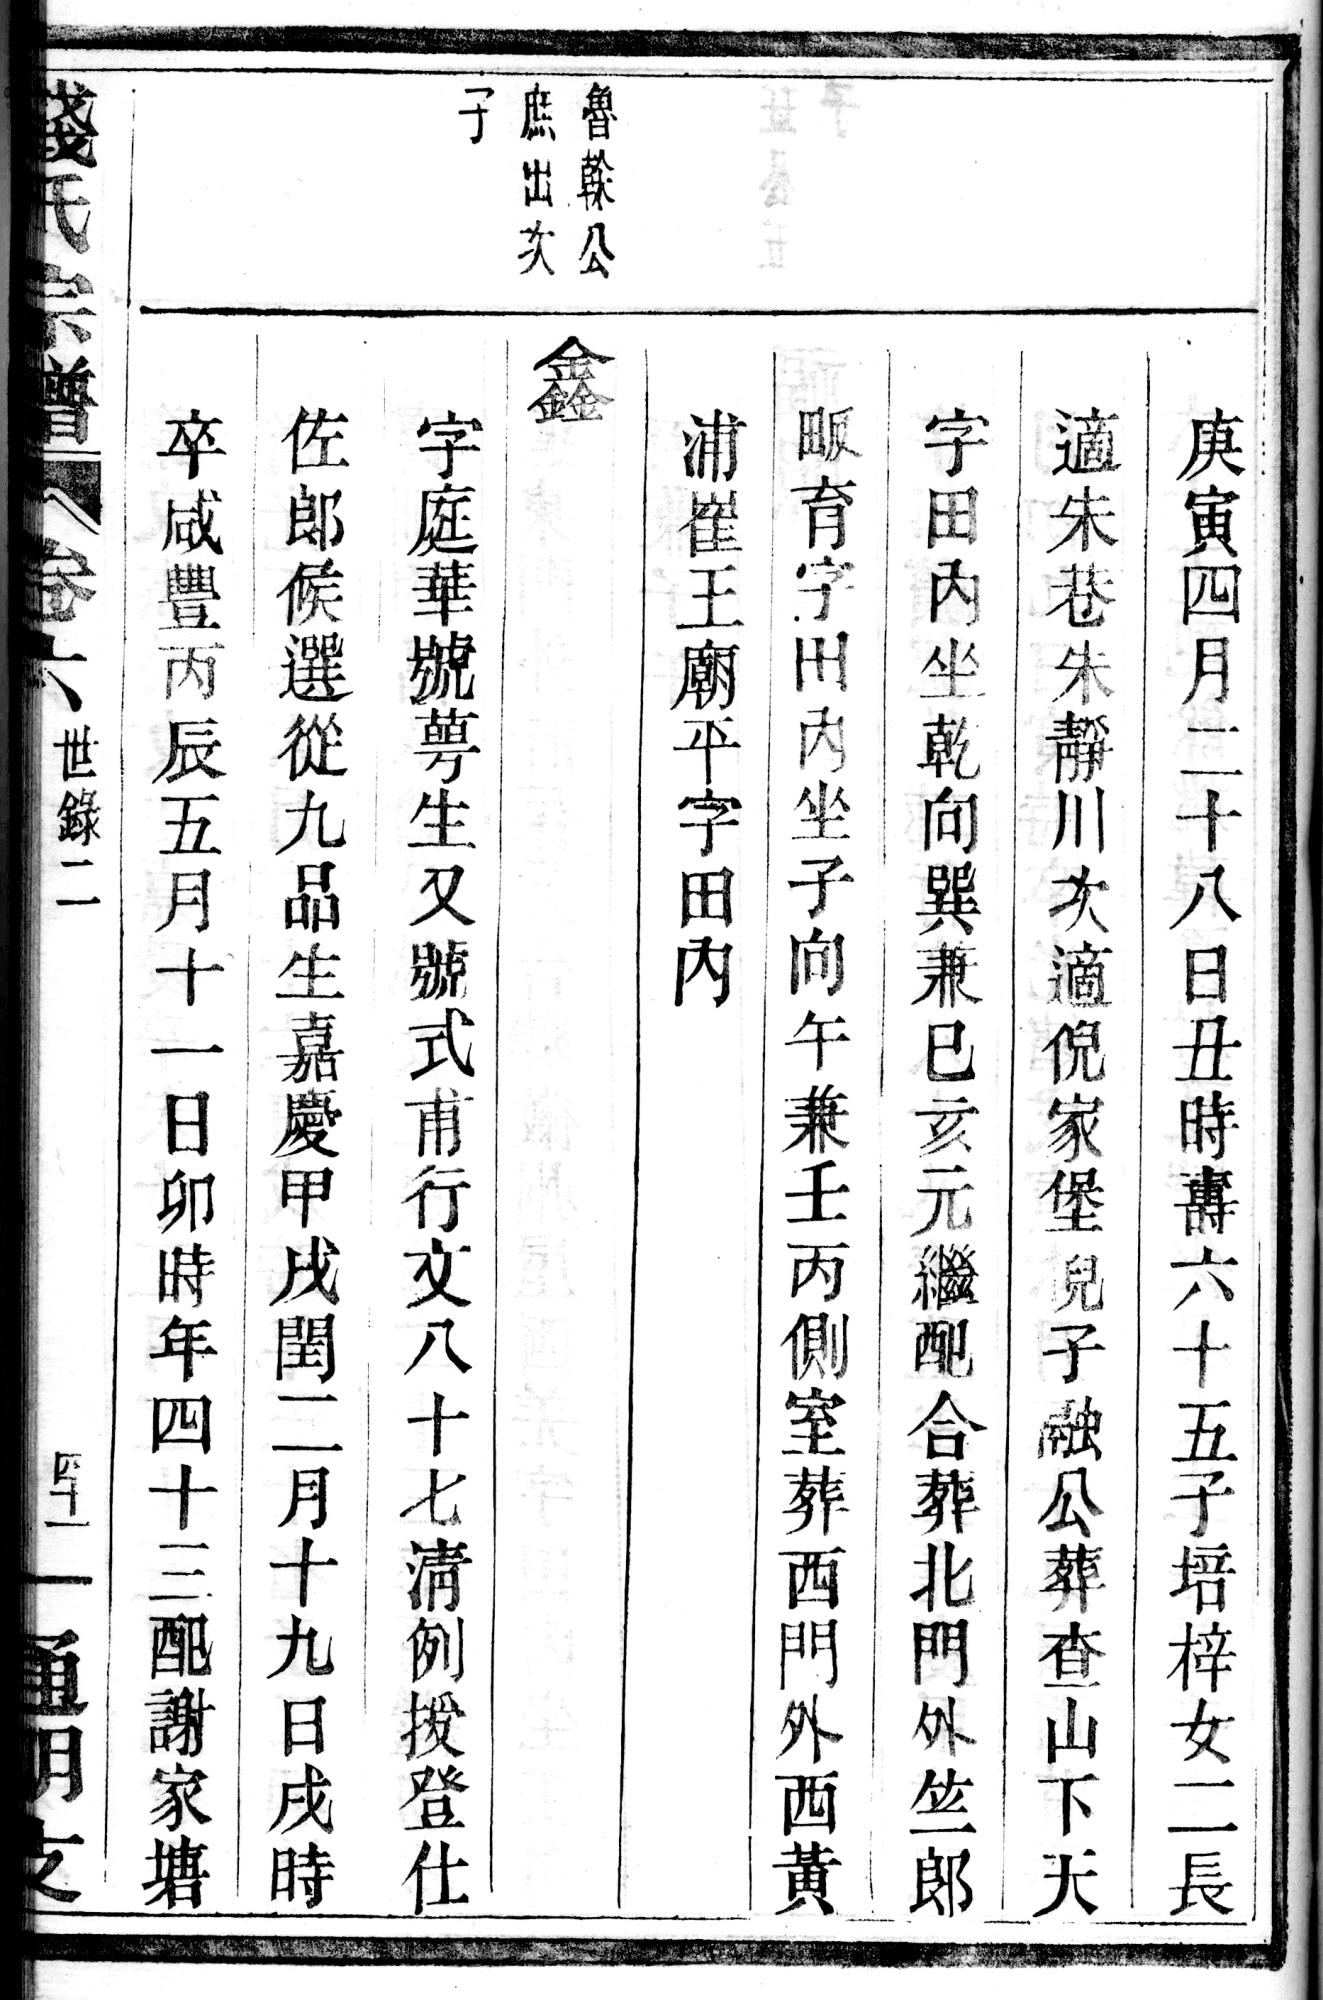 庚寅四月二十八日丑時壽六十五子培梓女二長
適朱巷朱靜川次適倪家堡倪子融公葬查山下天
字田內坐乾向巽兼巳亥元繼配合葬北門外竺郎
畈育字田內坐子向午兼壬丙側室葬西門外西黃
浦崔王廟平字田內
魯榦公
庶出次
子
鑫
字庭華號萼生又號式甫行文八十七淸例授登仕
佐郎候選從九品生嘉慶甲戌閏二月十九日戌時
卒咸豐丙辰五月十一日卯時年四十三配謝家塘
錢氏宗譜 卷六 世錄二 四十一 通明支